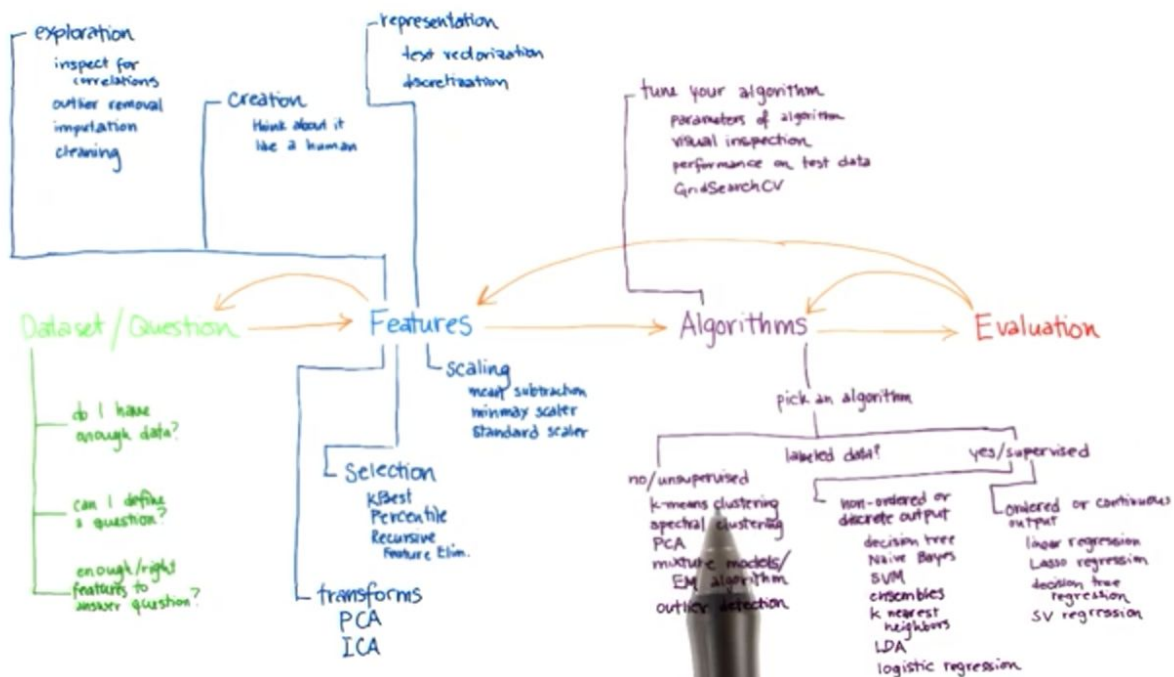 exploration
inspect for
correlations
outlier removal
imputation
cleaning
creation
think about it
like a human
representation
text vectorization
discretization
tune your algorithm
parameters of algorithm
visual inspection
performance on test data
GridSearchCV
Dataset/Question
Features
Algorithms
Evaluation
do I have
enough data?
can I define
a question?
enough/right
features to
answer question?
scaling
mean subtraction
minmax scaler
standard scaler
selection
KBest
Percentile
Recursive
Feature Elim.
transforms
PCA
ICA
pick an algorithm
labeled data?
no/unsupervised
k-means clustering
spectral clustering
PCA
mixture models/
EM algorithm
outlier detection
yes/supervised
non-ordered or
discrete output
decision tree
Naive Bayes
SVM
ensembles
k nearest
neighbors
LDA
logistic regression
ordered or continuous
output
linear regression
Lasso regression
decision tree
regression
SV regression